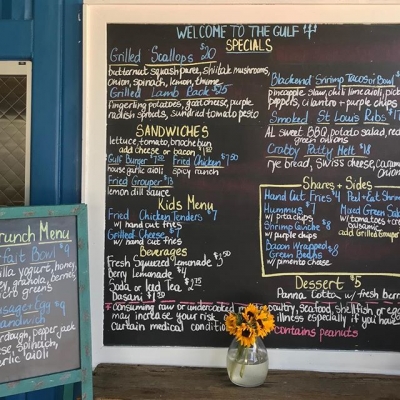 WELCOME TO THE GULF
SPECIALS
Grilled Scallops $20
butternut squash puree, shiitake mushrooms,
onion, spinach, lemon, thyme
Grilled Lamb Rack $25
fingerling potatoes, goat cheese, purple
radish sprouts, sundried tomato pesto
SANDWICHES
lettuce, tomato, brioche bun
add cheese or bacon
Gulf Burger
house garlic aioli
Fried Chicken
spicy ranch
Fried Grouper $13
lemon dill sauce
Kids Menu
Fried Chicken Tenders $7
w/ hand cut fries
Grilled Cheese
w/ hand cut fries
Beverages
Fresh Squeezed Lemonade
Berry Lemonade $4
Soda or Iced Tea
Dasani
Blackened Shrimp Tacos or Bowl
pineapple slaw, chili lime aioli, pick
peppers, cilantro + purple chips
Smoked St Louis Ribs
AL sweet BBQ, potato salad, red
green onions
Crabby Patty Melt $18
rye bread, swiss cheese, caram
onion
Shares + Sides
Hand Cut Fries $4
Hummus
w/ pita chips
Shrimp Ceviche $8
w/ purple chips
Bacon Wrapped $8
Green Beans
w/ pimento cheese
Peel + Eat Shrim
Mixed Green Sala
w/ tomatoes + cre
balsamic
add Grilled Grouper
Dessert $5
Panna Cotta w/ fresh berr
* consuming raw or undercooked poultry, seafood, shellfish or eg
may increase your risk illness especially if you hav
certain medical conditio
contains peanuts
runch Menu
fait Bowl $9
illa yogurt, honey,
y, granola, berries
icro greens
usage + Egg $9
andwich
rdough, pepper jack
ese, spinach,
rlic aioli